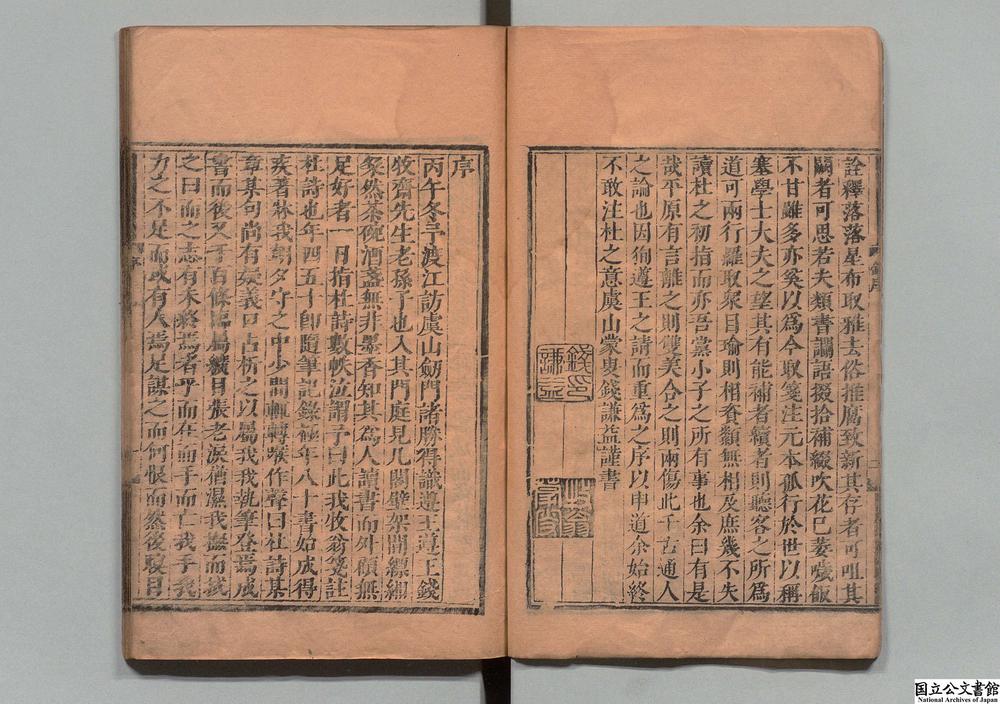 詮釋落落星布取雅去俗推腐致新其存者可咀其
闕者可思若夫類書讕語掇拾補綴吹花已萎噦飯
不甘雖多亦奚以爲今取箋注元本孤行於世以稱
塞學士大夫之望其有能補者續者則聽客之所爲
道可兩行羅取衆目瑜則相奄纇無相及庶幾不失
讀杜之初指而亦吾黨小子之所有事也余曰有是
哉平原有言離之則雙美合之則兩傷此千古通人
之論也因徇遵王之請而重爲之序以申道余始終
不敢注杜之意虞山蒙叟錢謙益謹書
錢印
謙益
牧翁
蒙叟
序
丙午冬予渡江訪虞山劒門諸勝得識遵王遵王錢
牧齋先生老孫子也入其門庭見几閣壁架間縹緗
粲然茶碗酒盞無非墨香知其爲人讀書而外顧無
足好者一日指杜詩數帙泣謂予曰此我牧翁箋註
杜詩也年四五十即隨筆記錄極年八十書始成得
疾著牀我朝夕守之中少間輒轉喉作聲曰杜詩某
章某句尚有疑義口占析之以屬我我執筆登焉成
書而後又千百條臨屬纊目張老淚猶濕我撫而拭
之曰而之志有未終焉者乎而在而手而亡我手我
力之不足而或有人焉足謀之而何恨而然後瞑目
国立公文書館
National Archives of Japan